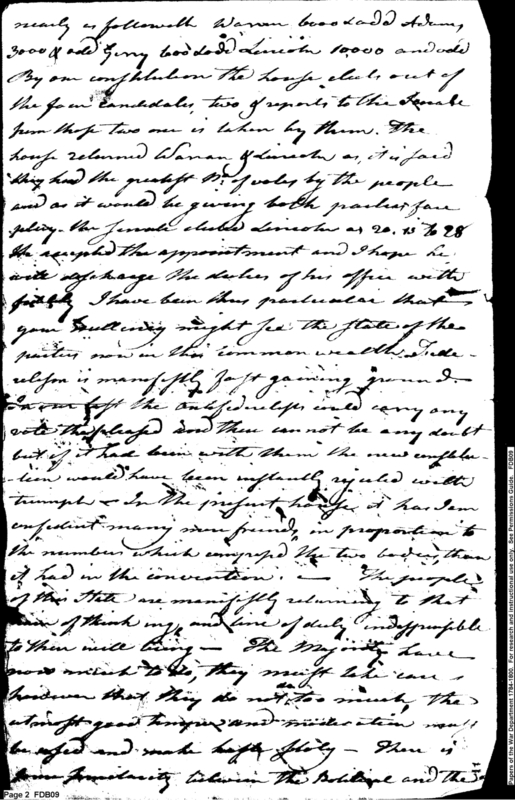 nearly as followeth Warran 6000 & odd Adams
3000 & odd Gerry 600 & odd Lincoln 10,000 and odd
By our constitution the house elects out of
the four candidates, two & reports to the Senate
from those two one is taken by them. The
house returned Warran & Lincoln as, it is said
they had the greatest No. of votes by the people
and as it would be giving both parties fare
play. the senate elected Lincoln as 20. to 28
He accepted the appointment and I hope he
will discharge the duties of his office with
fidelity I have been thus particular that
your Excellency might see the state of the
parties now in this common wealth Fede-
relism is manifestly fast gaining ground
In our last the antifederelists could carry any
vote they pleased and there cannot be any doubt
but if it had been with them the new constitu-
tion would have been instantly rejected with
triumph - In the present house it has I am
confident many more friends, in proportion to
the numbers which compose the two bodies, than
it had in the convention. — The people
of this State are manifestly returning to that
train of thinking, and line of duty indispensible
to their well being — The Majority have
now much to do, they must take care
however that they do not too much, the
utmost good temper and moderation must
be used and make haste slowly — There is
some similarity between the Political and the
Page 2 FDB09
Papers of the War Department 1784-1800. For research and instructional use only. See Permissions Guide. FDB09